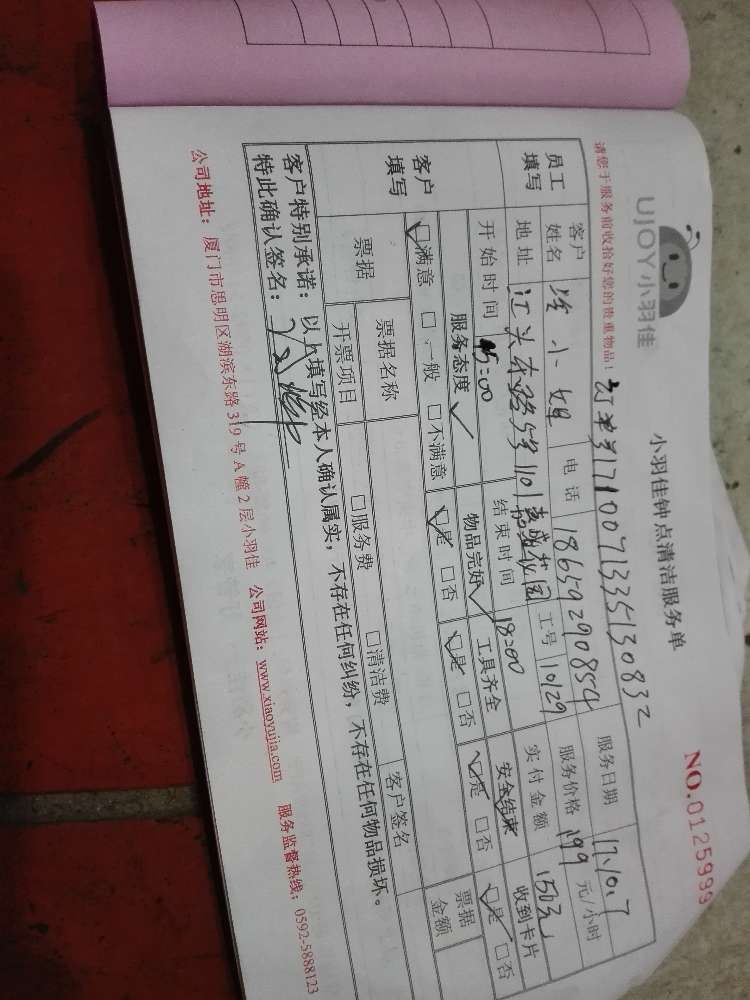 UJOY小羽佳
小羽佳钟点清洁服务单
NO.0125999
请您于服务前收拾好您的贵重物品！
订单号171007133513083２
服务日期 17.10.7
员工填写
客户姓名 小姐 电话 18659290854 服务价格 199 元/小时
地址 江头东路5号1101 工号 10129 实付金额 150元
开始时间 15:00 结束时间 18:00
客户填写
服务态度 物品完好 工具齐全 安全结束 收到卡片
☑满意 □一般 □不满意 ☑是 □否 ☑是 □否 ☑是 □否 ☑是 □否
票据 票据名称 客户签名 票据金额
开票项目 □服务费 □清洁费
客户特别承诺：以上填写经本人确认属实，不存在任何纠纷，不存在任何物品损坏。
特此确认签名：
公司地址：厦门市思明区湖滨东路319号A幢2层小羽佳 公司网站：www.xiaoyujia.com 服务监督热线：0592-5888123